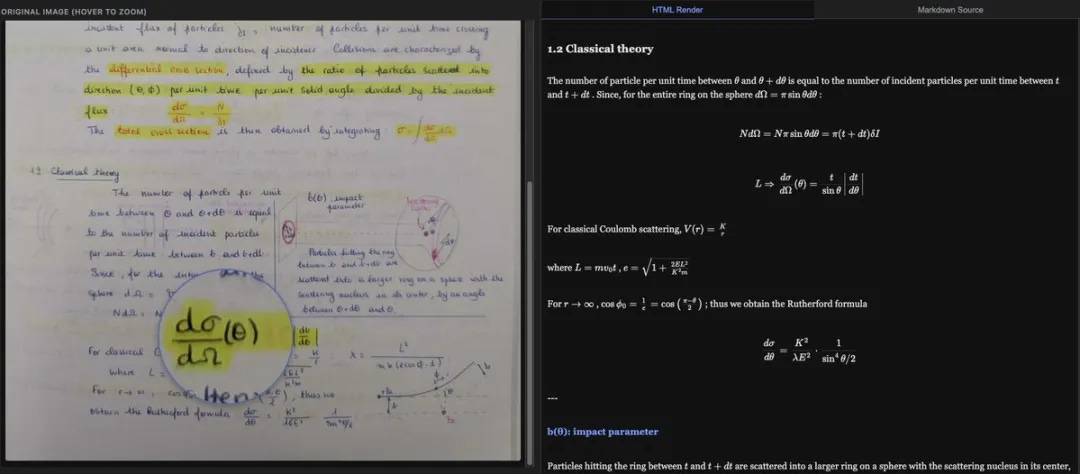 ORIGINAL IMAGE (HOVER TO ZOOM)
incident flux of particles δI = number of particles per unit time crossing
a unit area normal to direction of incidence. Collisions are characterized by
the differential cross section, defined by the ratio of particles scattered into
direction (θ, φ) per unit time per unit solid angle divided by the incident
flux dσ/dΩ = N/δI
The total cross section is then obtained by integrating σ = ∫ dσ/dΩ dΩ
1.2 Classical theory
The number of particle per unit
time between θ and θ+dθ is equal
to the number of incident particles
per unit time between b and b+db.
Since, for the
sphere dΩ =
NdΩ =
b(θ): impact
parameter
Particles hitting the ring
between b and b+db are
scattered into a larger ring on a sphere with the
scattering nucleus in its center, by an angle
between θ+dθ and θ.
dσ/dΩ (θ)
|db/dθ|
For classical
where L =
For r→∞, thus we
obtain the Rutherford formula dσ/dθ =
HTML Render
Markdown Source
1.2 Classical theory
The number of particle per unit time between θ and θ + dθ is equal to the number of incident particles per unit time between t
and t + dt . Since, for the entire ring on the sphere dΩ = π sin θdθ :
NdΩ = Nπ sin θdθ = π(t + dt)δI
L ⇒ dσ/dΩ (θ) = t/sin θ |dt/dθ|
For classical Coulomb scattering, V(r) = K/r
where L = mv₀t , e = √(1 + 2EL²/K²m)
For r → ∞ , cos φ₀ = 1/e = cos ((π−θ)/2) ; thus we obtain the Rutherford formula
dσ/dθ = K²/λE² · 1/sin⁴ θ/2
---
b(θ): impact parameter
Particles hitting the ring between t and t + dt are scattered into a larger ring on a sphere with the scattering nucleus in its center,